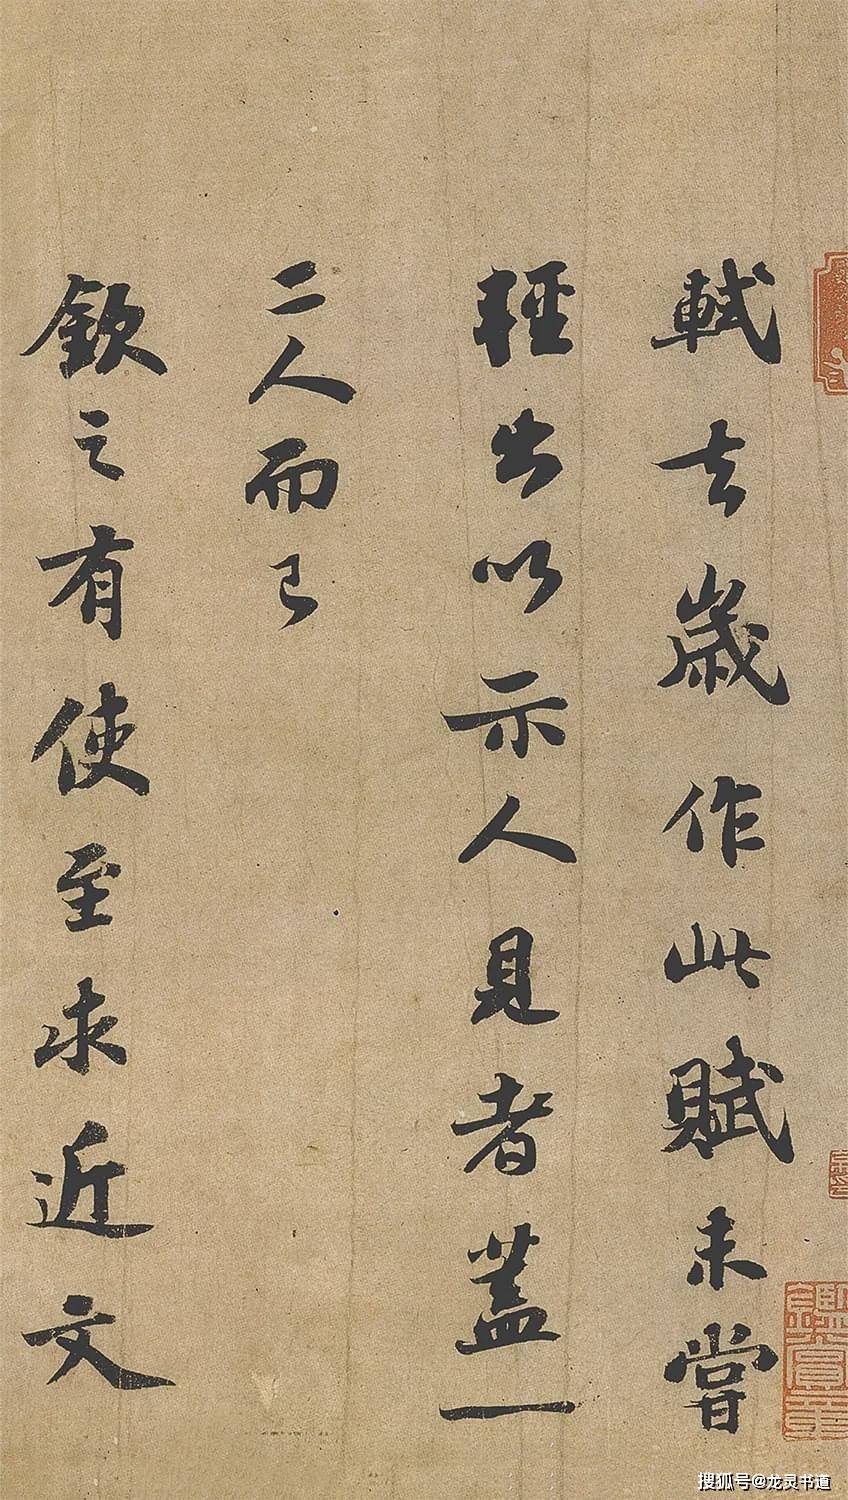 軾去歲作此賦未嘗
輕出以示人見者蓋一
二人而已
欽之有使至求近文
搜狐号@龙灵书道